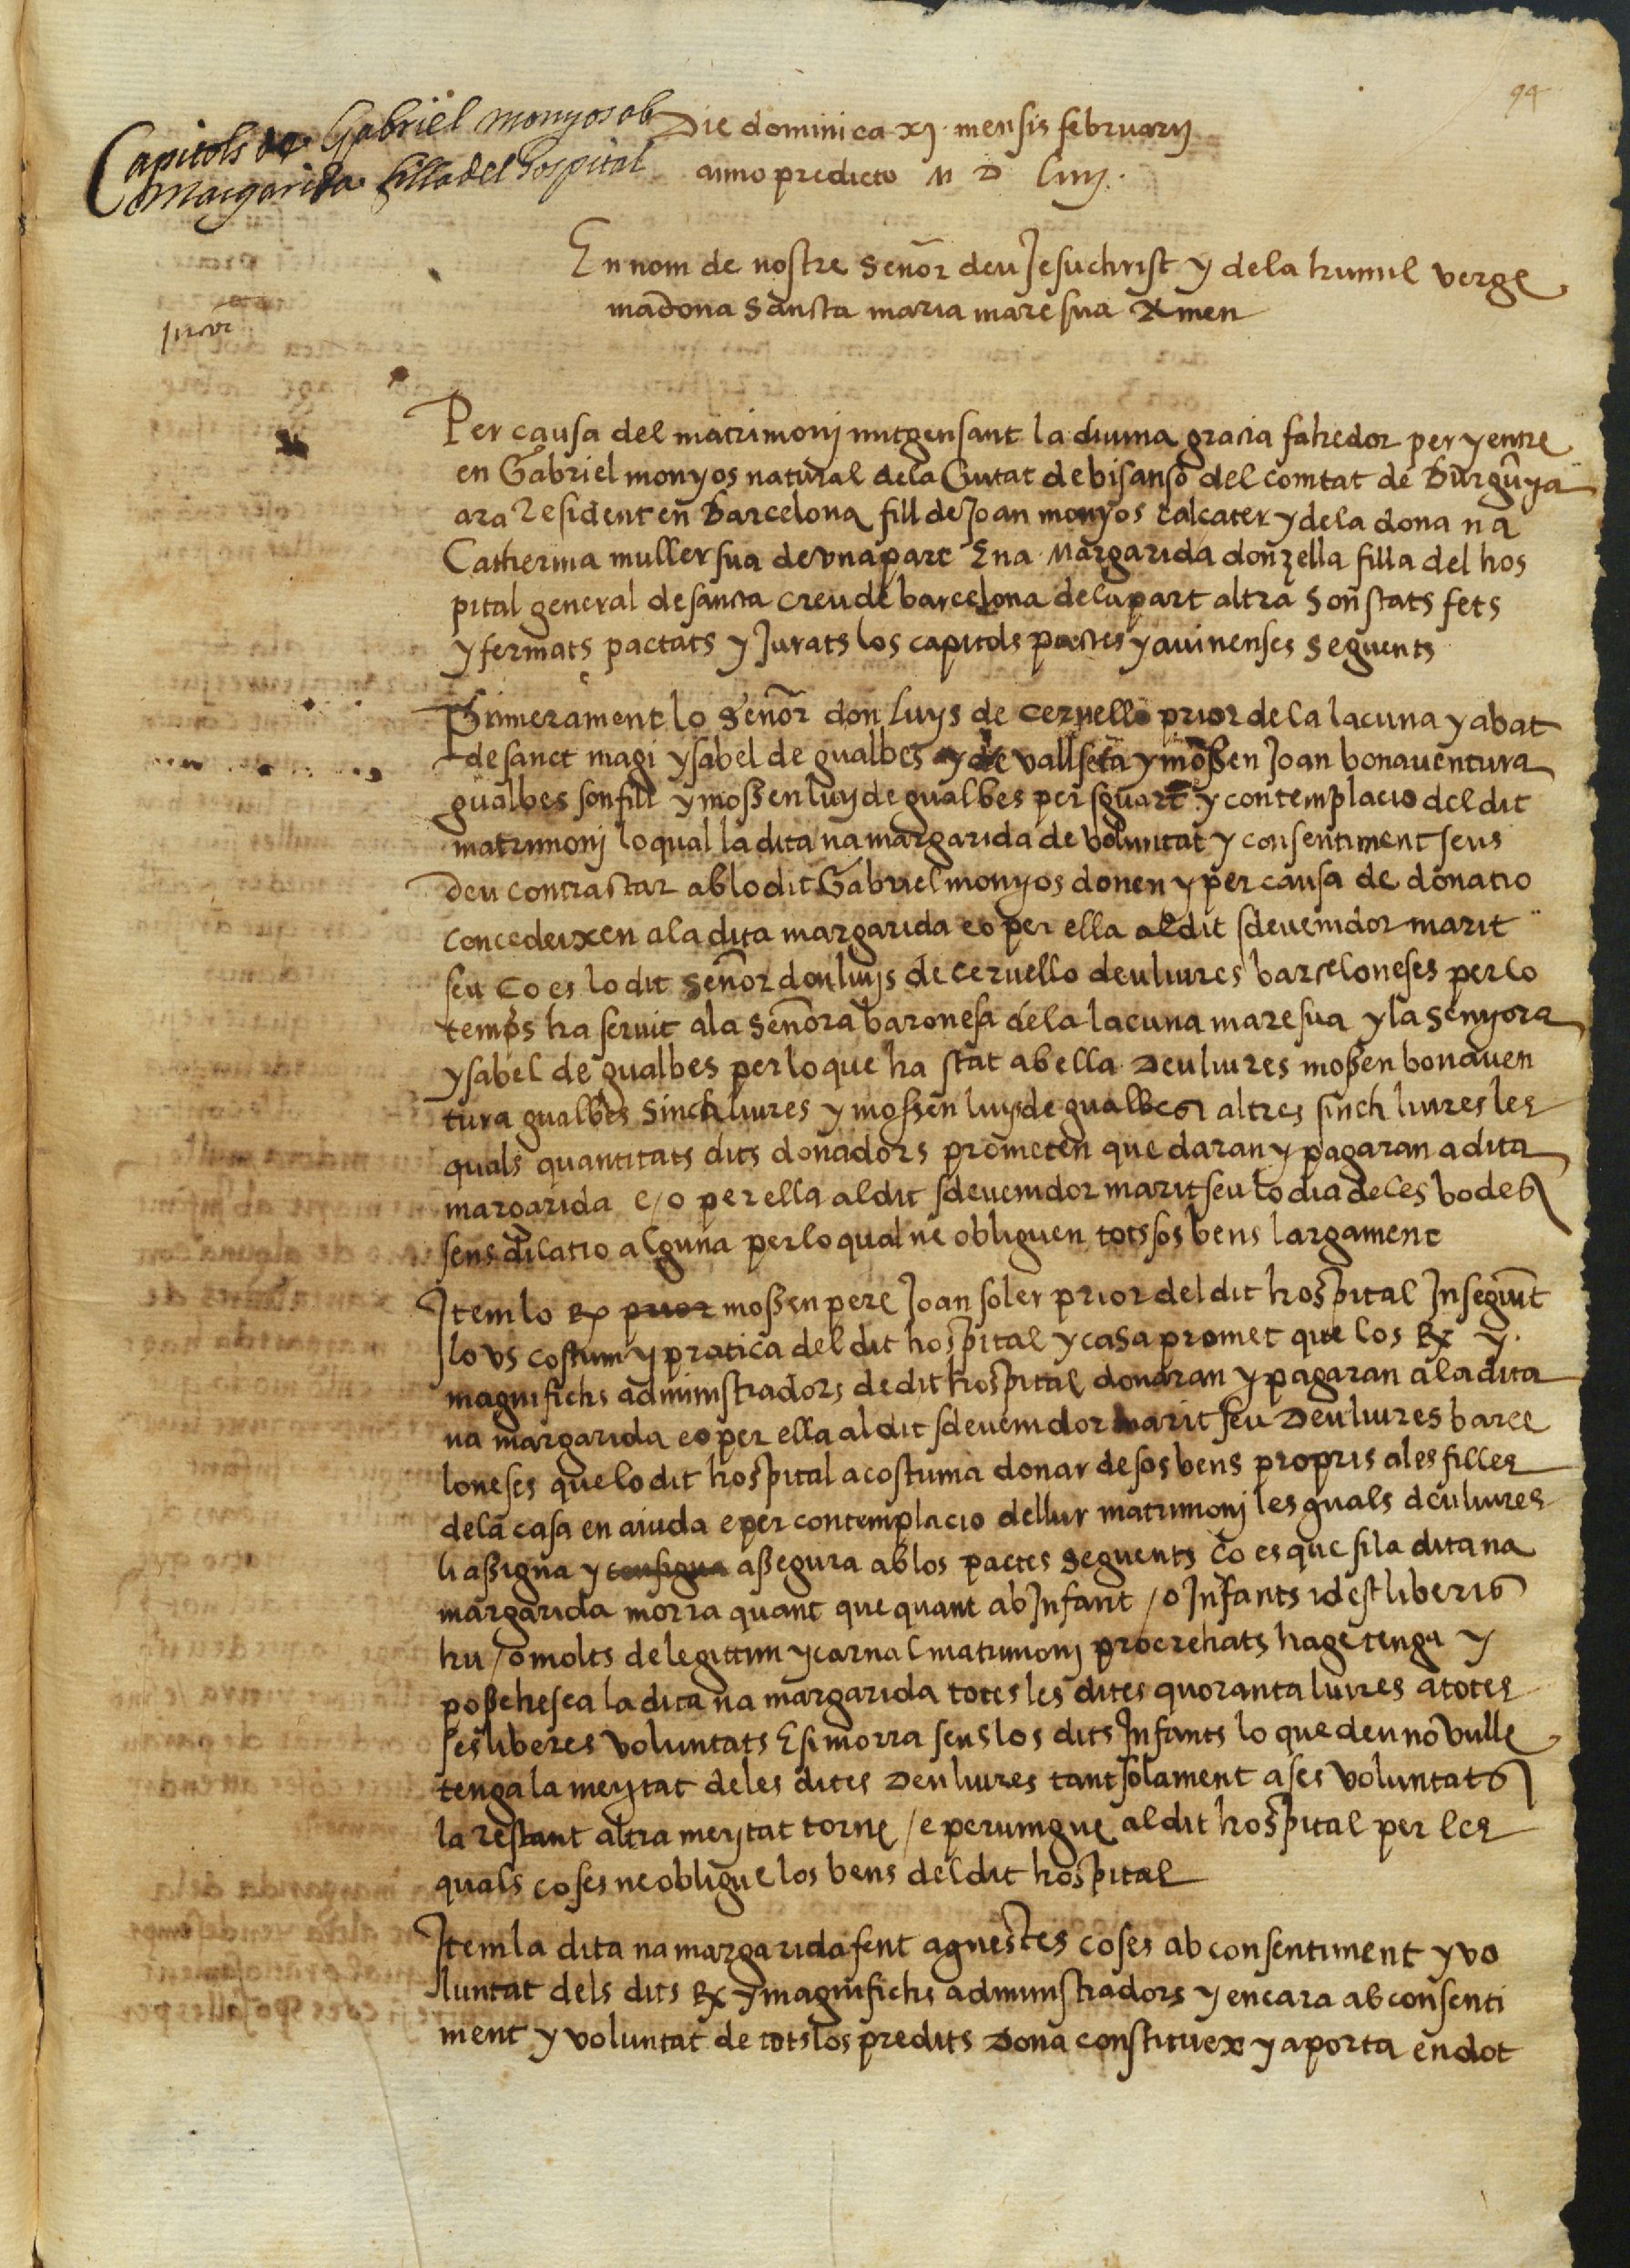 94
Capitols de Gabriel monyos ab
Margarida filla del hospital
Die dominica xj mensis februarij
anno predicto M D Liiij.
En nom de nostre Señor deu Jesuchrist y dela humil verge
madona Sancta maria mare sua Amen
Per causa del matrimonj mitgensant la diuina gracia fahedor per y entre
en Gabriel monyos natural dela Ciutat de bisanso del comtat de Burgunya
ara Resident en Barcelona fill de Joan monyos calcater y dela dona na
Catherina muller sua de vna part E na Margarida donzella filla del hos
pital general de sancta creu de barcelona dela part altra Son stats fets
y fermats pactats y Jurats los capitols pactes y auinenses Seguents
Primerament lo Señor don Luys de ceruello prior de la lacuna y abat
de sanct magi ysabel de gualbes y de vallseca y moßen Joan bonauentura
gualbes son fill y moßen luys de gualbes per sguart y contemplacio del dit
matrimonj lo qual la dita na margarida de voluntat y consentiment seus
deu contrastar ab lo dit Gabriel monyos donen y per causa de donatio
concedeixen a la dita margarida eo per ella al dit sdeuenidor marit
seu ço es lo dit Señor don luys de ceruello deu liures barceloneses per lo
temps ha seruit a la Señora baronesa de la lacuna mare sua y la Senyora
ysabel de gualbes per lo que ha stat ab ella Deu liures moßen bonauen
tura gualbes Sinch liures y moßen luys de gualbes altres sinch liures les
quals quantitats dits donadors prometen que daran y pagaran a dita
margarida e/o per ella al dit sdeuenidor marit seu lo dia de les bodes
sens dilatio alguna per lo qual ne obliguen tots sos bens largament
Item lo Rx prior moßen pere Joan soler prior del dit hospital Inseguint
lo vs costum y pratica del dit hospital y casa promet que los Rx y
magnifichs administradors de dit hospital donaran y pagaran a la dita
na margarida eo per ella al dit sdeuenidor marit seu Deu liures barce
loneses que lo dit hospital acostuma donar de sos bens propris a les filles
de la casa en aiuda e per contemplacio de llur matrimonj les quals deu liures
li aßigna y consigna aßegura ab los pactes Seguents ço es que si la dita na
margarida morra quant que quant ab Infant / o Infants id est liberis
hu / o molts de legittim y carnal matrimonj procrehats hage tenga y
poßehesca la dita na margarida totes les dites quoranta liures a totes
ses liberes voluntats E si morra sens los dits Infants lo que deu no vulle
tenga la meytat de les dites Deu liures tant solament a ses voluntats
la restant altra meytat torne / e peruingue al dit hospital per les
quals coses ne obligue los bens del dit hospital
Item la dita na margarida fent aquestes coses ab consentiment y vo
luntat dels dits Rx y magnifichs administradors y encara ab consenti
ment y voluntat de tots los predits Dona constituex y aporta en dot